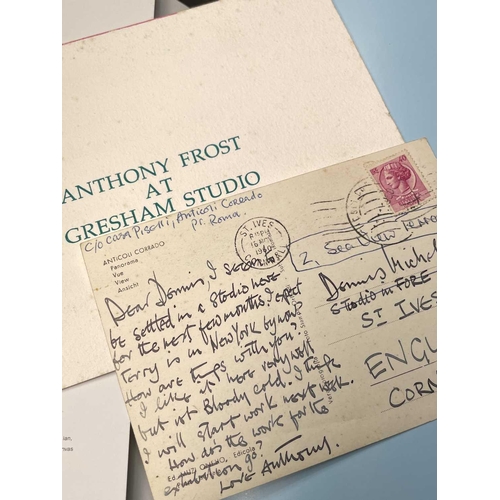 ANTHONY FROST
AT
GRESHAM STUDIO
c/o Casa Piselli, Anticoli Corrado
Pr. Roma.
ANTICOLI CORRADO
Panorama
Vue
View
Ansicht
Dear Dennis, I seem to
be settled in a studio here
for the next few months. I expect
Terry is in New York by now.
How are things with you?
I like it here very well
but it Bloody cold. I think
I will start work next week.
How does the work for the
exhibition go?
Love Anthony.
Edicola
ST. IVES
2, Sea View
Dennis Mitchell
Studio in FORE
ST IVES
ENGL
CORN